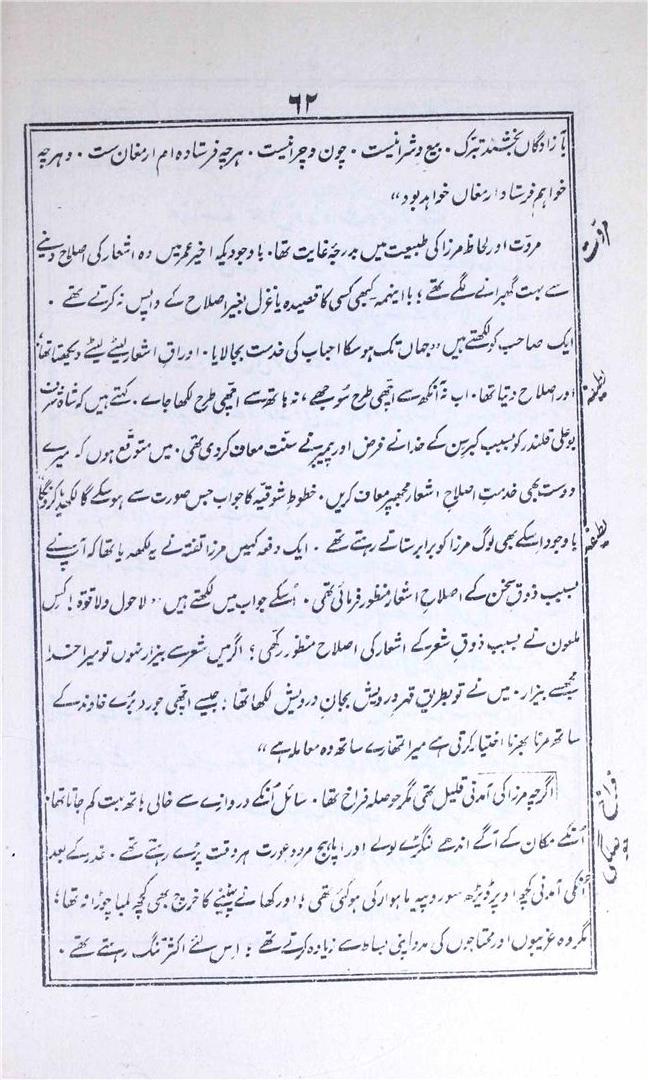 ۶۲
بآزادگاں بخشند تبرک ۔ بیع و شرا نیست ۔ چون و چرا نیست ۔ ہرچہ فرستادہ ام ارمغان ست ۔ و ہرچہ
خواہم فرستاد ارمغاں خواہد بود ״
مروّت اور لحاظ مرزا کی طبیعت میں بدرجۂ غایت تھا ۔ باوجودیکہ اخیر عمر میں وہ اشعار کی اصلاح دینے
سے بہت گھبرانے لگے تھے ؛ بااینہمہ کبھی کسی کا قصیدہ یا غزل بغیر اصلاح کے واپس نہ کرتے تھے ۔
ایک صاحب کو لکھتے ہیں ״ جہاں تک ہو سکا احباب کی خدمت بجا لایا ۔ اوراقِ اشعار لیٹے لیٹے دیکھتا تھا
اور صلاح دیتا تھا ۔ اب نہ آنکھ سے اچھی طرح سوجھے ، نہ ہاتھ سے اچھی طرح لکھا جاے ۔ کہتے ہیں کہ شاہ شرف
بوعلی قلندر کو بسبب کبرِ سن کے خدا نے فرض اور پیمبر نے سنّت معاف کردی تھی ۔ میں متوقع ہوں کہ میرے
دوست بھی خدمتِ اصلاحِ اشعار مجھپر معاف کریں ۔ خطوطِ شوقیہ کا جواب جس صورت سے ہو سکے گا لکھدیا کرونگا
باوجود اسکے بھی لوگ مرزا کو برابر ستاتے رہتے تھے ۔ ایک دفعہ کہیں مرزا تفتہ نے یہ لکھدیا تھا کہ آپ نے
بسبب ذوقِ سخن کے اصلاحِ اشعار منظور فرمائی تھی ۔ اُسکے جواب میں لکھتے ہیں ״ لاحول ولا قوۃ ! کس
ملعون نے بسبب ذوقِ شعر کے اشعار کی اصلاح منظور رکھی ؛ اگر میں شعر سے بیزار نہوں تو میرا خدا
مجھسے بیزار ۔ میں نے تو بطریق قہرِ درویش بجانِ درویش لکھا تھا ؛ جیسے اچھی جورو بُرے خاوند کے
ساتھ مرنا بھرنا اختیار کرتی ہے میرا تمھارے ساتھ وہ معاملہ ہے ״
اگرچہ مرزا کی آمدنی قلیل تھی مگر حوصلہ فراخ تھا ۔ سائل اُنکے دروازے سے خالی ہاتھ بہت کم جاتا تھا ۔
اُنکے مکان کے آگے اندھے لنگڑے لولے اور اپاہج مرد و عورت ہر وقت پڑے رہتے تھے ۔ غدر کے بعد
اُنکی آمدنی کچھ اوپر ڈیڑھ سو روپیہ ماہوار کی ہوگئی تھی ؛ اور کھانے پینے کا خرچ بھی کچھ لمبا چوڑا نہ تھا ؛
مگر وہ غریبوں اور محتاجوں کی مدد اپنی بساط سے زیادہ کرتے تھے ؛ اِس لئے اکثر تنگ رہتے تھے ۔
مروّت
لطیفہ
لطیفہ
فراخ حوصلگی